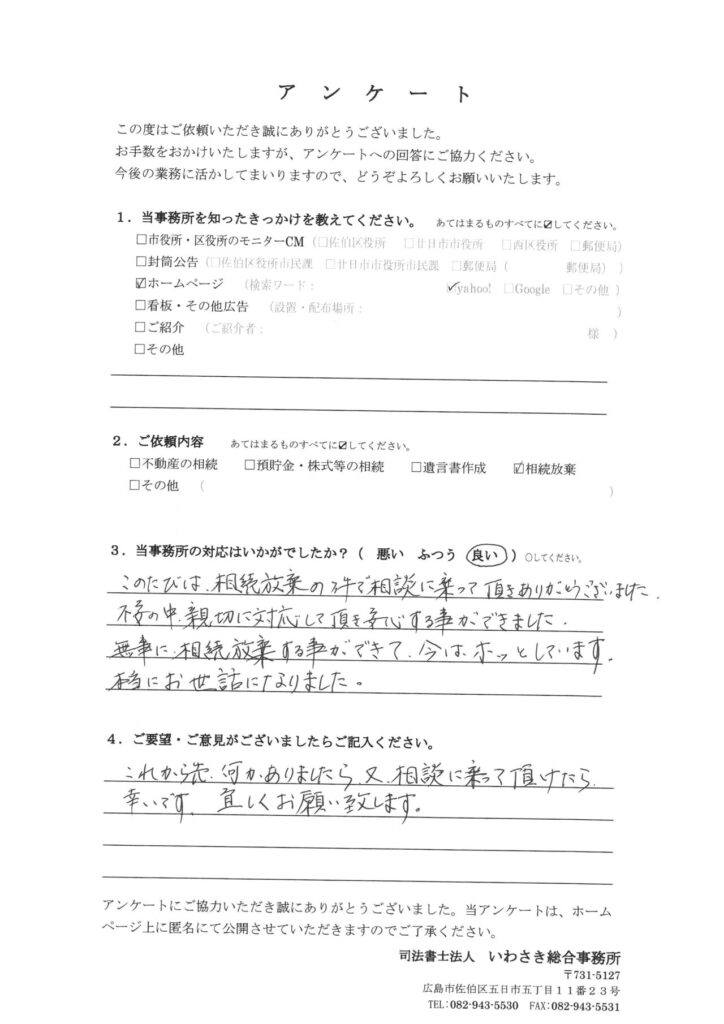 アンケート
この度はご依頼いただき誠にありがとうございました。
お手数をおかけいたしますが、アンケートへの回答にご協力ください。
今後の業務に活かしてまいりますので、どうぞよろしくお願いいたします。
１．当事務所を知ったきっかけを教えてください。 あてはまるものすべてに☑してください。
□市役所・区役所のモニターCM （□佐伯区役所 □廿日市市役所 □西区役所 □郵便局）
□封筒公告（□佐伯区役所市民課 □廿日市市役所市民課 □郵便局（ 郵便局））
☑ホームページ （検索ワード： ☑yahoo! □Google □その他 ）
□看板・その他広告 （設置・配布場所： ）
□ご紹介 （ご紹介者： 様 ）
□その他
２．ご依頼内容 あてはまるものすべてに☑してください。
□不動産の相続 □預貯金・株式等の相続 □遺言書作成 ☑相続放棄
□その他 （ ）
３．当事務所の対応はいかがでしたか？（ 悪い ふつう 良い ）○してください。
このたびは、相続放棄の件で相談に乗って頂きありがとうございました.
不安の中、親切に対応して頂き安心する事ができました.
無事に、相続放棄する事ができて、今は、ホッとしています.
本当にお世話になりました。
４．ご要望・ご意見がございましたらご記入ください。
これから先、何かありましたら、又、相談に乗って頂けたら
幸いです、宜しくお願い致します。
アンケートにご協力いただき誠にありがとうございました。当アンケートは、ホーム
ページ上に匿名にて公開させていただきますのでご了承ください。
司法書士法人 いわさき総合事務所
〒731-5127
広島市佐伯区五日市五丁目１１番２３号
TEL：082-943-5530 FAX：082-943-5531